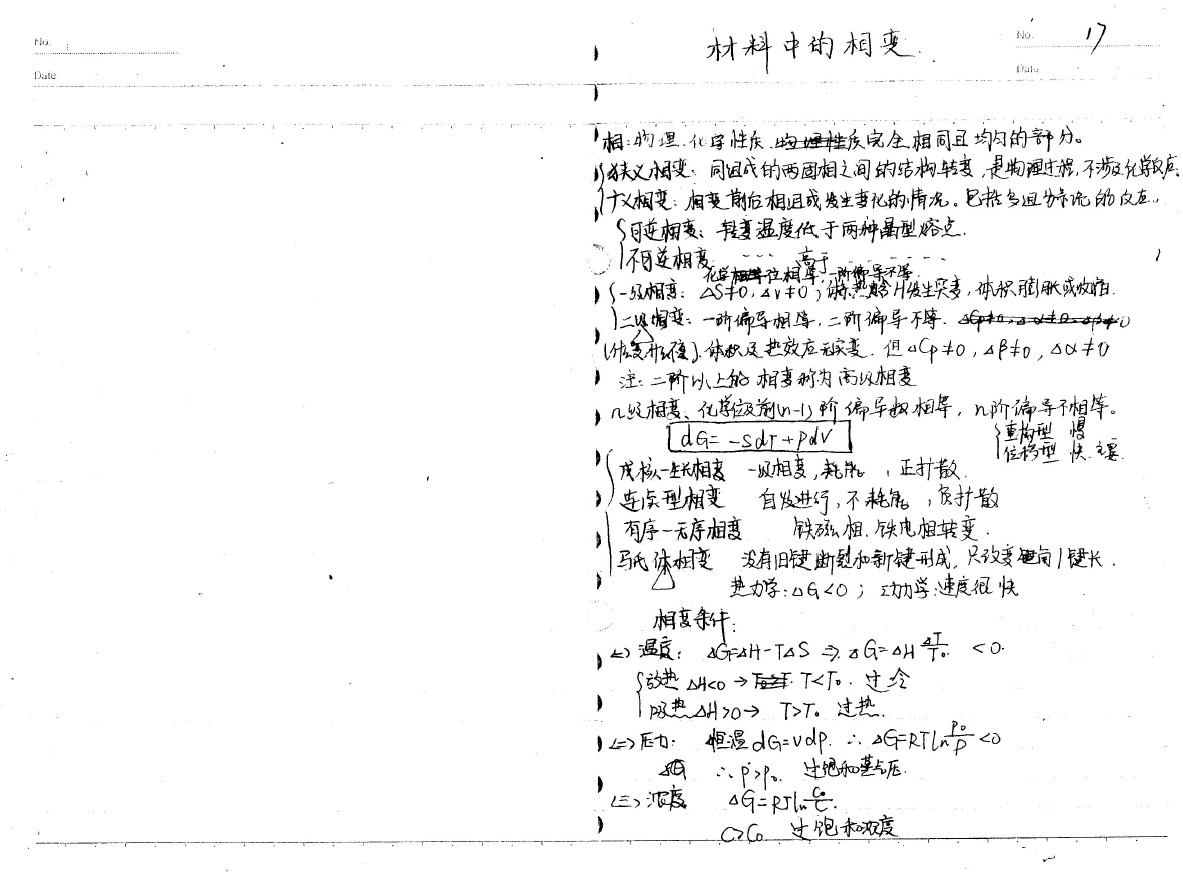 No.
Date
材料中的相变.
No. 17
Date
相:物理.化学性质完全相同且均匀的部分。
狭义相变:同组成的两固相之间的结构转变,是物理过程,不涉及化学反应.
广义相变:相变前后相组成发生变化的情况。包括多组分系统的反应.
可逆相变:转变温度低于两种晶型熔点.
不可逆相变 - - - 高于 - - - - - -
化学位相等,一阶偏导不等.
一级相变:△S≠0,△V≠0;热焓H发生突变,体积膨胀或收缩.
二级相变:一阶偏导相等,二阶偏导不等.
体积及热效应无突变.但△Cp≠0,△β≠0,△α≠0
注:二阶以上的相变称为高级相变
n级相变、化学位及前(n-1)阶偏导数相等,n阶偏导不相等。
dG=-SdT+pdV
重构型 慢
位移型 快.主要.
成核-生长相变 一级相变,耗能,正扩散.
连续型相变 自发进行,不耗能,负扩散
有序-无序相变 铁磁相.铁电相转变.
马氏体相变 没有旧键断裂和新键形成,只改变键向/键长.
热力学:△G<0; 动力学:速度很快
相变条件:
(一)温度: △G=△H-T△S ⇒ △G=△H △T/T₀ <0.
放热 △H<0 → T<T₀. 过冷
吸热 △H>0 → T>T₀ 过热.
(二)压力: 恒温 dG=Vdp. ∴ △G=RTln p₀/p <0
∴ p>p₀. 过饱和蒸气压.
(三)浓度. △G=RTln C₀/C.
C>C₀. 过饱和浓度